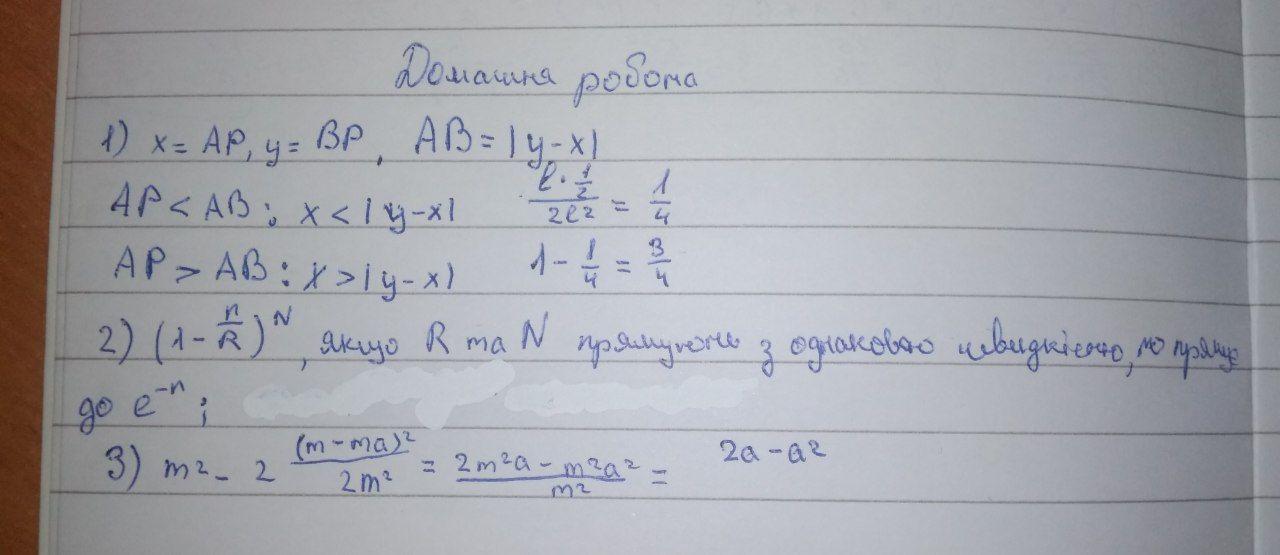 Домашня робота
1) x = AP, y = BP, AB = |y-x|
AP < AB: x < |y-x| (ℓ·1/2)/(2ℓ2) = 1/4
AP > AB: x > |y-x| 1 - 1/4 = 3/4
2) (1 - n/R)^N, якщо R та N прямують з однаковою швидкістю, то пряму
до e^-n;
3) m² - 2 (m-ma)²/2m² = (2m²a - m²a²)/m² = 2a - a²